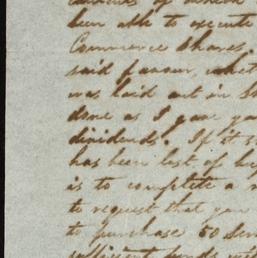 been able to execute
Commerce Shares.
said favour, whet
was laid out in S
done as I gave you
dividends. If it s
has been lost of buy
is to complete a
to request that you
to purchase 50 Dem
sufficient funds